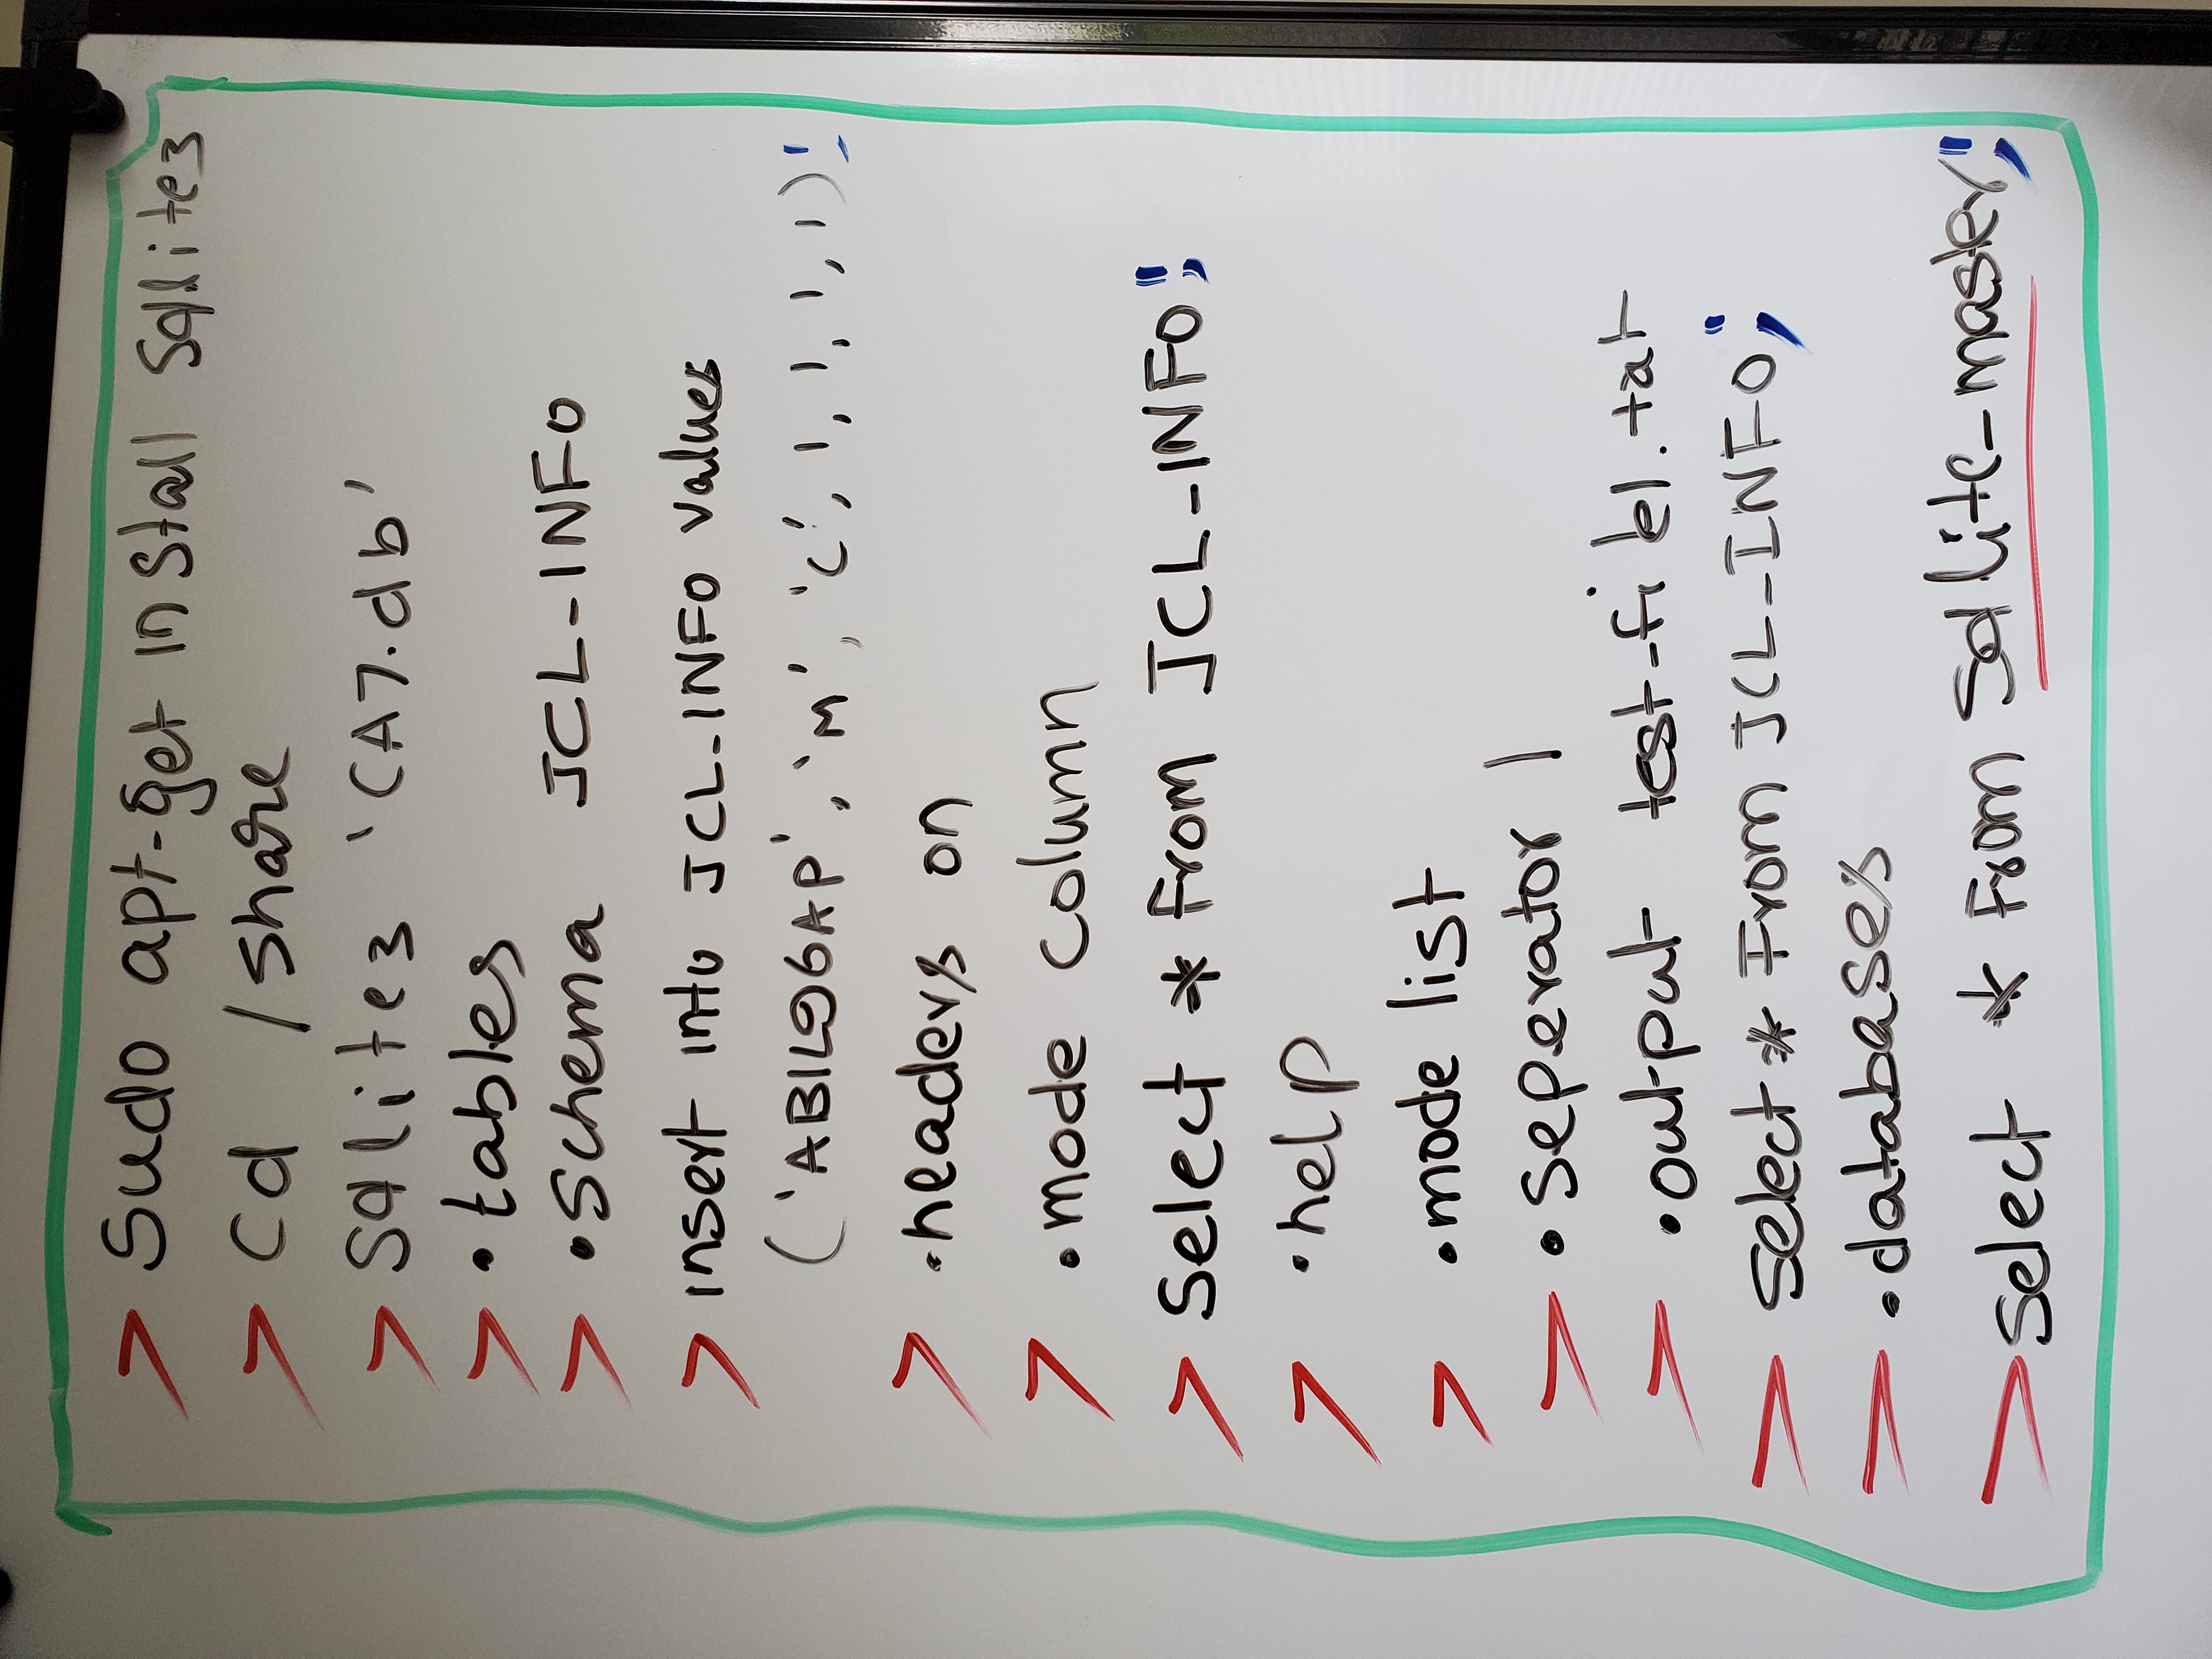 > sudo apt-get install sqllite3
> cd /share
> sqlite3 'CA7.db'
> .tables
> .schema JCL-INFO
> insert into JCL-INFO values
('ABIL96AP', 'M', 'C', 1, 1, 1, 1);
> .headers on
> .mode column
> select * from JCL-INFO;
> .help
> .mode list
> .seperator |
> .output
> select * From JCL-INFO;
> .databases
> select * From sqllite-master;